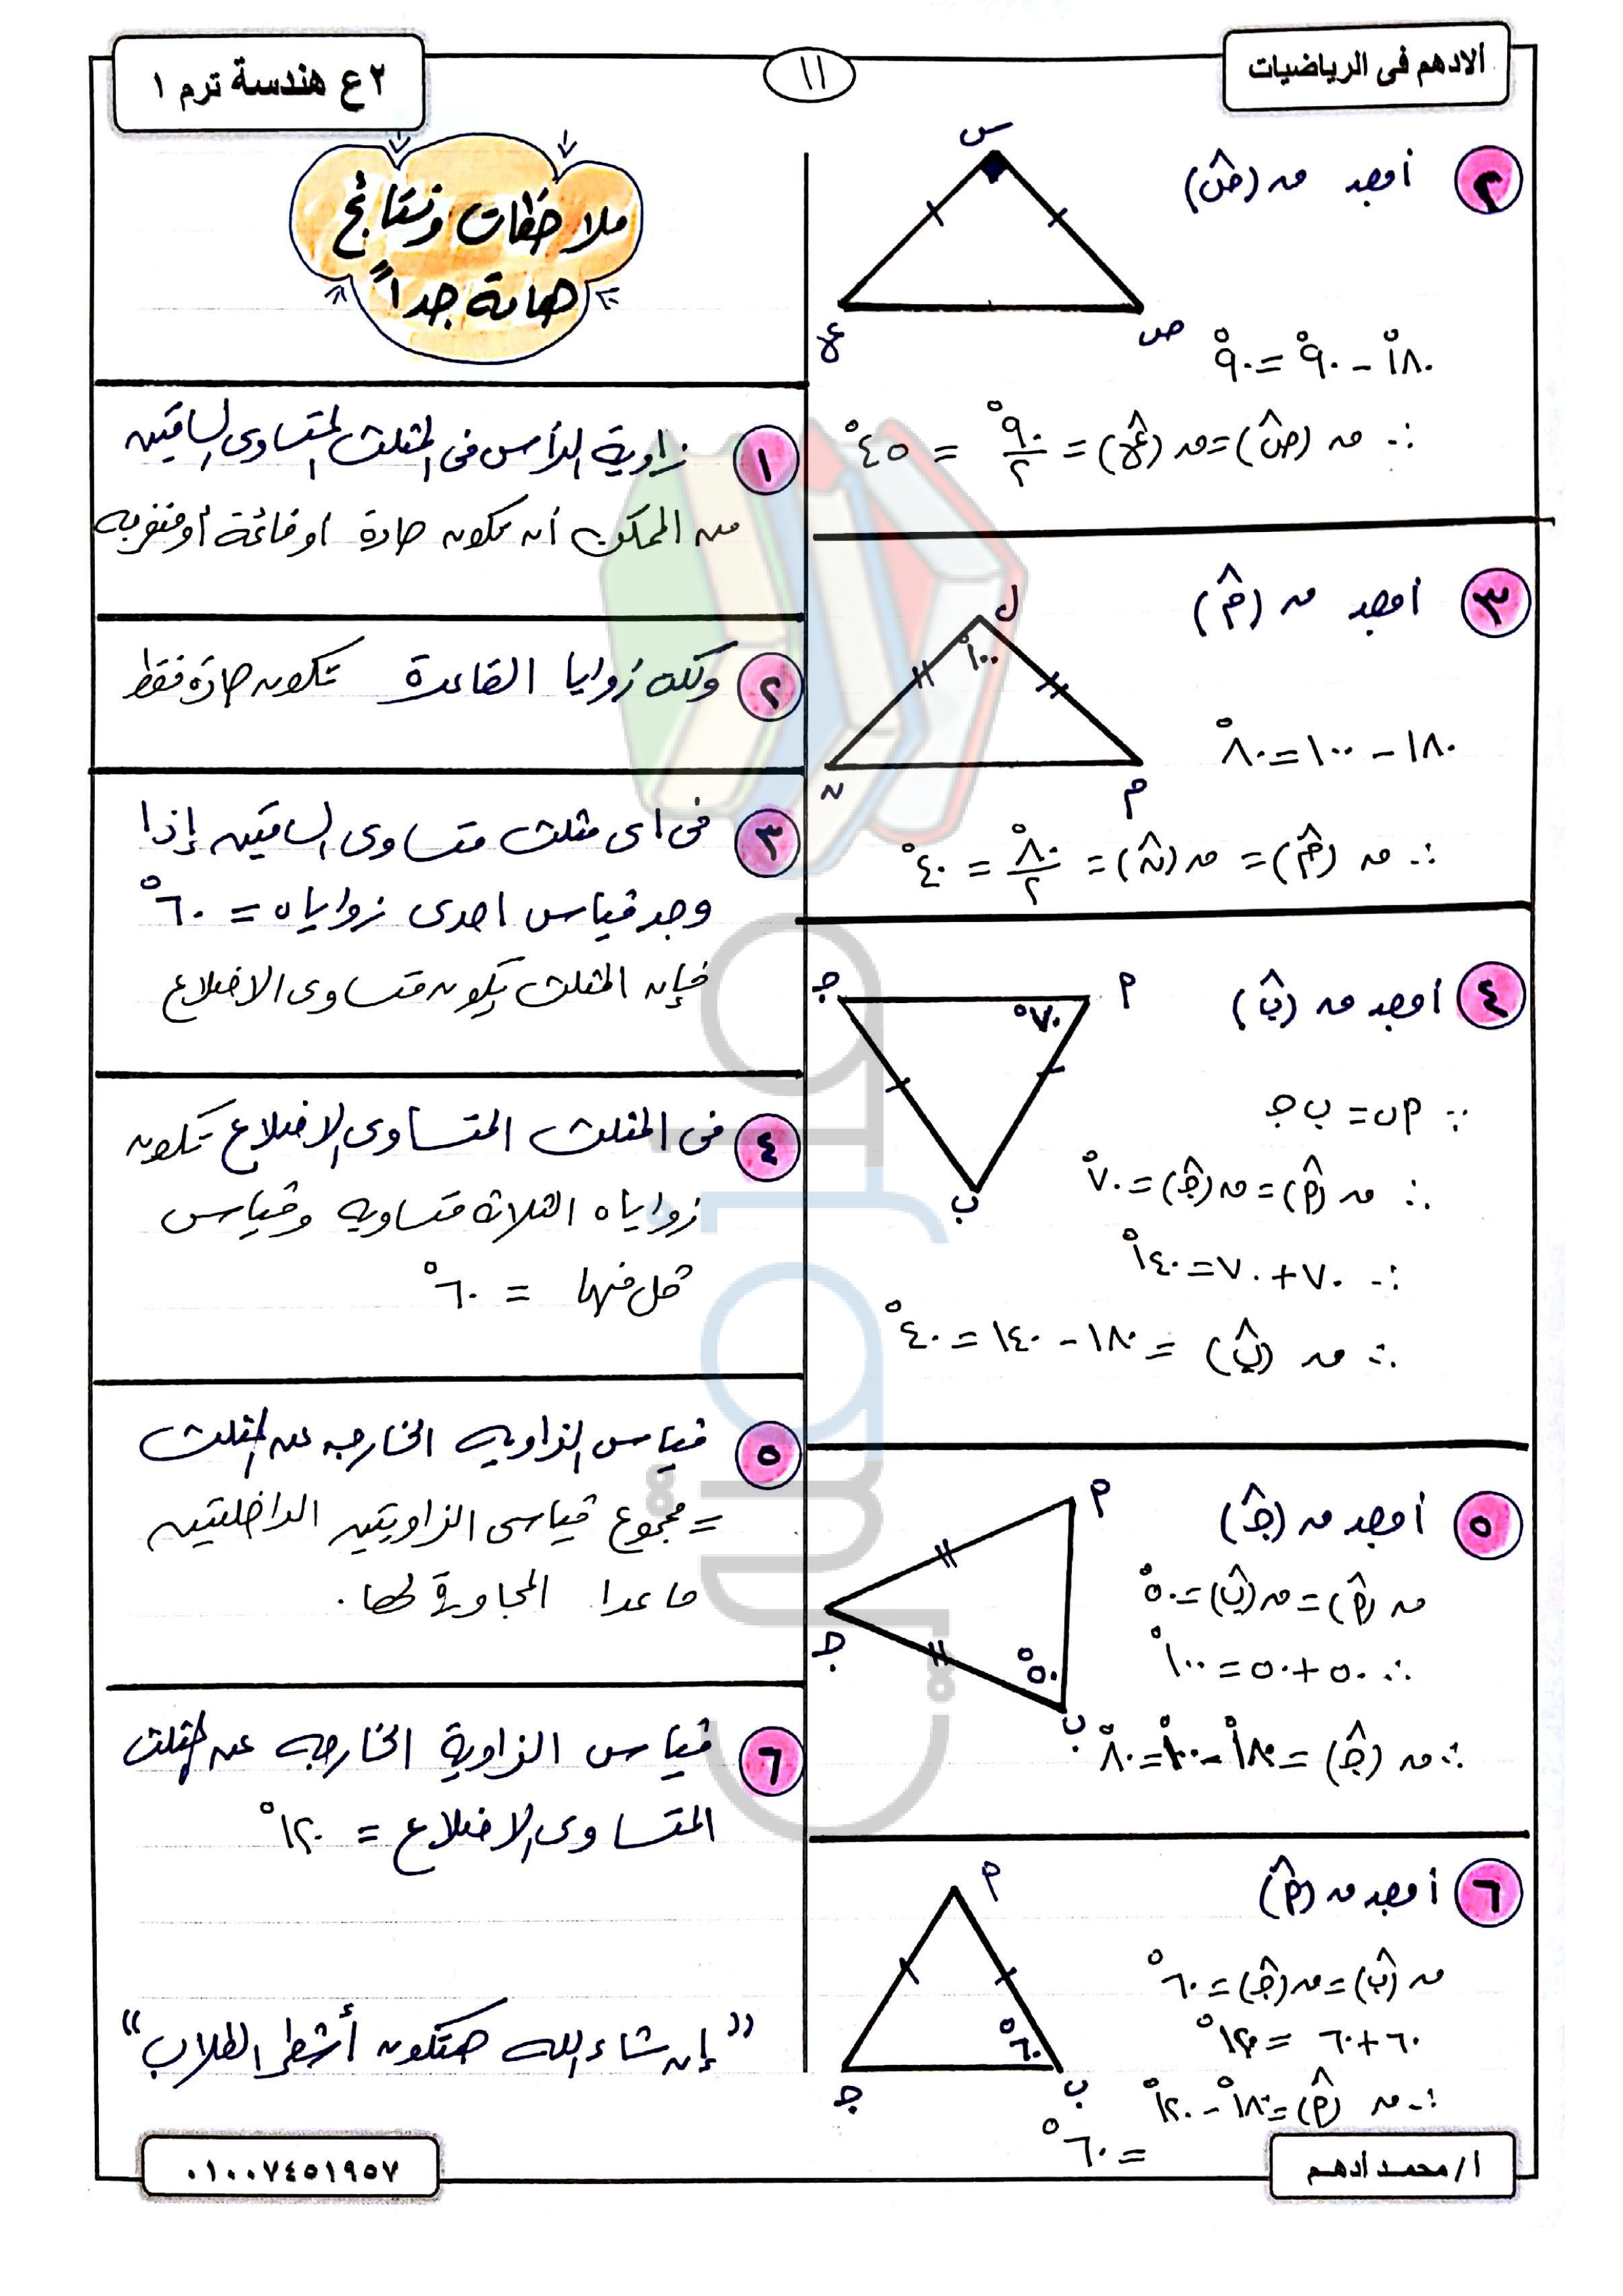 الادهم فى الرياضيات
١١
٢ع هندسة ترم ١
٢ أوجد ق (ص̂)
س
ع
ص
١٨٠° - ٩٠° = ٩٠°
∴ ق (ص̂) = ق (ع̂) = ٩٠°/٢ = ٤٥°
٣ أوجد ق (م̂)
ل
١٠٠°
ن
م
١٨٠ - ١٠٠ = ٨٠°
∴ ق (م̂) = ق (ن̂) = ٨٠°/٢ = ٤٠°
٤ أوجد ق (ب̂)
جـ
٧٠°
م
ب
∵ م ب = ب جـ
∴ ق (م̂) = ق (جـ̂) = ٧٠°
∴ ٧٠ + ٧٠ = ١٤٠°
∴ ق (ب̂) = ١٨٠ - ١٤٠ = ٤٠°
٥ أوجد ق (جـ̂)
م
جـ
٥٠°
ب
ق (م̂) = ق (ب̂) = ٥٠°
∴ ٥٠ + ٥٠ = ١٠٠°
∴ ق (جـ̂) = ١٨٠° - ١٠٠° = ٨٠°
٦ أوجد ق (م̂)
م
٦٠°
جـ
ب
ق (ب̂) = ق (جـ̂) = ٦٠°
٦٠ + ٦٠ = ١٢٠°
∴ ق (م̂) = ١٨٠° - ١٢٠°
= ٦٠°
ملاحظات ونتائج
هامة جداً
١ زاوية الرأس فى المثلث المتساوى الساقين
من الممكن أن تكون حادة او قائمة أو منفرجه
٢ ولكن زوايا القاعدة تكون حادة فقط
٣ فى اى مثلث متساوى الساقين إذا
وجد قياس احدى زواياه = ٦٠°
فإن المثلث يكون متساوى الاضلاع
٤ فى المثلث المتساوى الاضلاع تكون
زواياه الثلاثة متساويه وقياس
كل منها = ٦٠°
٥ قياس الزاويه الخارجه عن المثلث
= مجموع قياسى الزاويتين الداخليتين
ماعدا المجاورة لها.
٦ قياس الزاوية الخارجه عن المثلث
المتساوى الاضلاع = ١٢٠°
"إن شاء الله هتكون أشطر الطلاب"
أ/محمد ادهم
٠١٠٠٧٤٥١٩٥٧